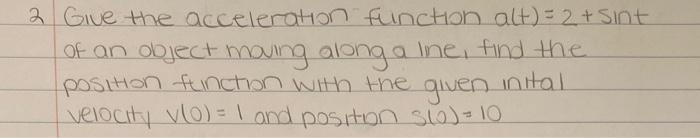 2 Give the acceleration function a(t) = 2 + sint
of an object moving along a line, find the
position function with the given inital
velocity v(0) = 1 and position s(0) = 10